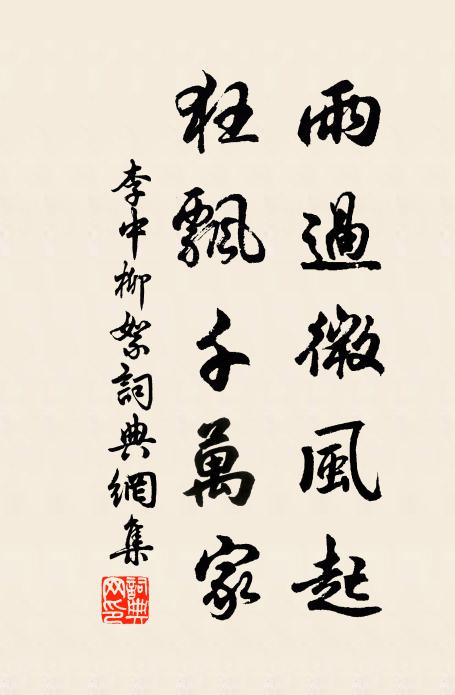 雨過微風起
狂飄千萬家
李中柳絮詞典網集
詞典網印